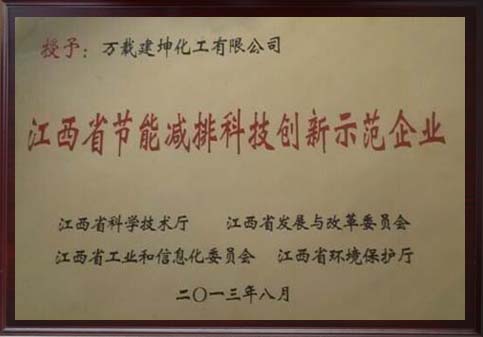 授予：万载建坤化工有限公司
江西省节能减排科技创新示范企业
江西省科学技术厅 江西省发展与改革委员会
江西省工业和信息化委员会 江西省环境保护厅
二〇一三年八月